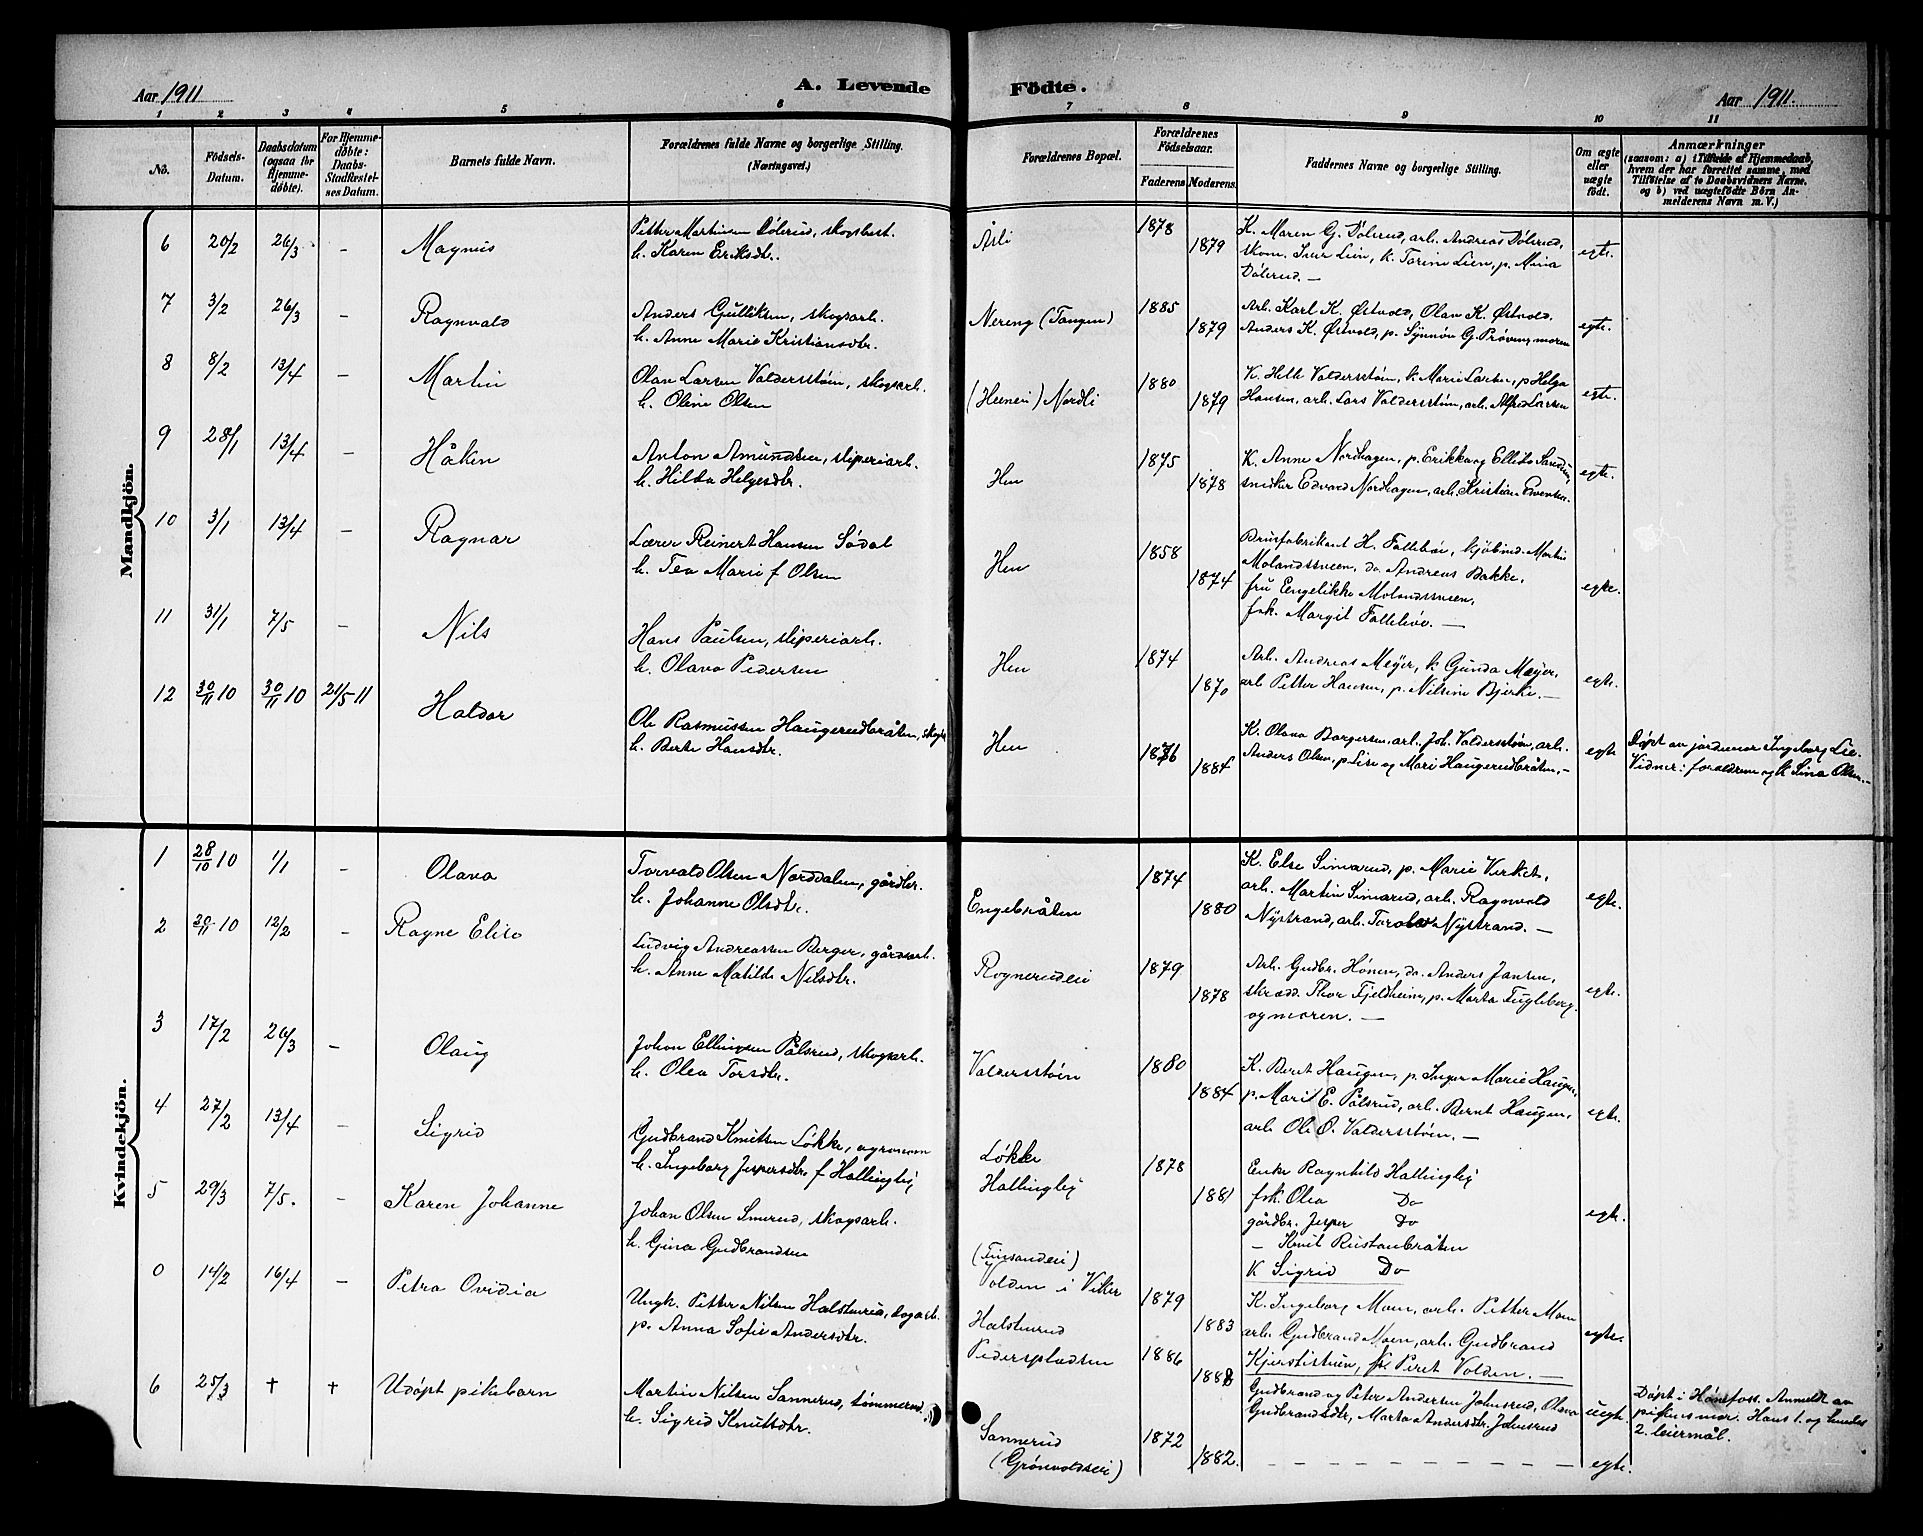 Aar 1911
A. Levende Födte.
Aar 1911.
1 2 3 4 5 6 7 8 9 10 11
No.
Födsels-Datum.
Daabsdatum (ogsaa for Hjemmedøbte).
For Hjemmedøbte: Daabs-Stadfæstelses Datum.
Barnets fulde Navn.
Forældrenes fulde Navne og borgerlige Stilling.
(Næringsvei.)
Forældrenes Bopæl.
Forældrenes Födselsaar.
Faderens Moderens
Faddernes Navne og borgerlige Stilling.
Om ægte eller uægte födt.
Anmærkninger
(saasom: a) i Tilfælde af Hjemmedaab,
hvem der har forrettet samme, med
Tilföielse af to Daabsvidners Navne,
og b) ved uægtefödte Börn Anmelderens Navn m. V.)
Mandkjön.
6 20/2 26/3 - Magnus
Petter Martinsen Dølerud, skogsbest.
h. Karen Eriksdtr.
Åsli
1878
1879
K. Maren G. Dølerud, arb. Andreas Dølerud,
skom. Iver Lien, k. Torine Lien, p. Mina
Dølerud. —
egte.
7 3/2 26/3 - Ragnvald
Anders Gulliksen, skogsarb.
h. Anne Marie Kristiansdtr.
Nereng (Tangen)
1885
1879
Arb. Karl K. Østvold, Olav K. Østvold,
Anders K. Østvold, p. Synnøv G. Prøven, moren
egte.
8 8/2 13/4 - Martin
Olav Larsen Valdersstøin, skogsarb.
h. Oline Olsen
(Heenei) Nordli
1880
1879
K. Helle Valdersstøin, k. Marie Larsen, p. Helga
Hansen, arb. Lars Valdersstøin, arb. Alfred Larsen
egte.
9 28/1 13/4 - Håken
Anton Amundsen, sliperiarb.
h. Hilda Helgesdtr.
Hen
1875
1878
K. Anne Nordhagen, p. Erikka og Ellise
snidker Edvard Nordhagen, arb. Kristian Evensen.
egte.
10 3/1 13/4 - Ragnar
Lærer Reinert Hansen Sødal
h. Tea Marie f. Olsen
Hen
1858
1874
Brusfabrikant H. Følleløv, kjøbmd. Martin
Molandsveen, do. Andreas Bakke,
fru Engelikke Molandsveen,
frk. Margit Følleløv. —
egte.
11 31/1 7/5 - Nils
Hans Paulsen, sliperiarb.
h. Olava Pedersen
Hen
1874
1870
Arb. Andreas Meyer, k. Gunda Meyer,
arb. Petter Hansen, p. Nilsine Bjerke. —
egte.
12 30/11 10 30/11 10 21/5 11 Haldor
Ole Rasmussen Haugerudbråten, skogsb.
h. Berte Hansdtr.
Hen
1876
1884
K. Olava Borgersen, arb. Joh. Valdersstøin, arb.
Anders Olsen, p. Lise og Mari Haugerudbråten. —
egte
Døpt av jordemor Ingeborg Lie.
Vidner: forældrene og k. Lina Olsen. —
Kvindekjön.
1 28/10 10 1/1 - Olava
Torvald Olsen Norddalen, gårdbr.
h. Johanne Olsdtr.
Engebråten
1874
1880
K. Else Simarud, p. Marie Virket,
arb. Martin Simarud, arb. Ragnvald
Nystrand, arb. Torolv Nystrand. —
egte.
2 20/11 10 12/2 - Ragne Elise
Ludvig Andreassen Berger, gårdsarb.
h. Anne Matilde Nilsdtr.
Rognerudeie
1879
1878
Arb. Gudbr. Hønen, do. Anders Jansen,
skrædd. Thor Fjeldheim, p. Marta Fugleberg
og moren. —
egte.
3 17/2 26/3 - Olaug
Johan Ellingsen Pålsrud, skogsarb.
h. Olea Torsdtr.
Valdersstøin
1880
1884
K. Beret Haugen, p. Inger Marie Haugen,
p. Mari E. Pålsrud, arb. Bernt Haugen,
arb. Ole O. Valdersstøin. —
egte.
4 27/2 13/4 - Sigrid
Gudbrand Knutsen Løkke, agronom
h. Ingeborg Jespersdtr. f. Hallingby
Løkke
Hallingby
1878
1881
Enke Ragnhild Hallingby
frk. Olea Do
gårdbr. Jesper Do
— Knut Rustanbråten
K Sigrid Do
egte.
5 29/3 7/5. - Karen Johanne
Johan Olsen Smerud, skogsarb.
h. Gina Gudbrandsen
(Finsandeie)
Volden i Viker
1879
1883
K. Ingeborg Moen, arb. Petter Moen
arb. Gudbrand Moen, arb. Gudbrand
Kjerstistuen, k. Peret Volden. —
egte.
0 14/2 16/4 - Petra Ovidia
Ungk. Petter Nilsen Halstenrud, dagarb.
p. Anna Sofie Andersdtr.
Halstenrud
Pedersplassen
1886
1888
Gudbrand og Peter Andersen Johnsrud, Olava
Gudbrandsdtr., Marta Andersdtr. Johnsrud
uegte.
Døpt i Hønefoss. Anmeldt av
pikens mor. Hans 1. og hendes
2. leiermål.
6 25/3 + + Udøpt pikebarn
Martin Nilsen Sannerud, tømmermd.
h. Sigrid Knutsdtr.
Sannerud
(Grønvoldseie)
1872
1882.
— — — — — — — — — —
egte.